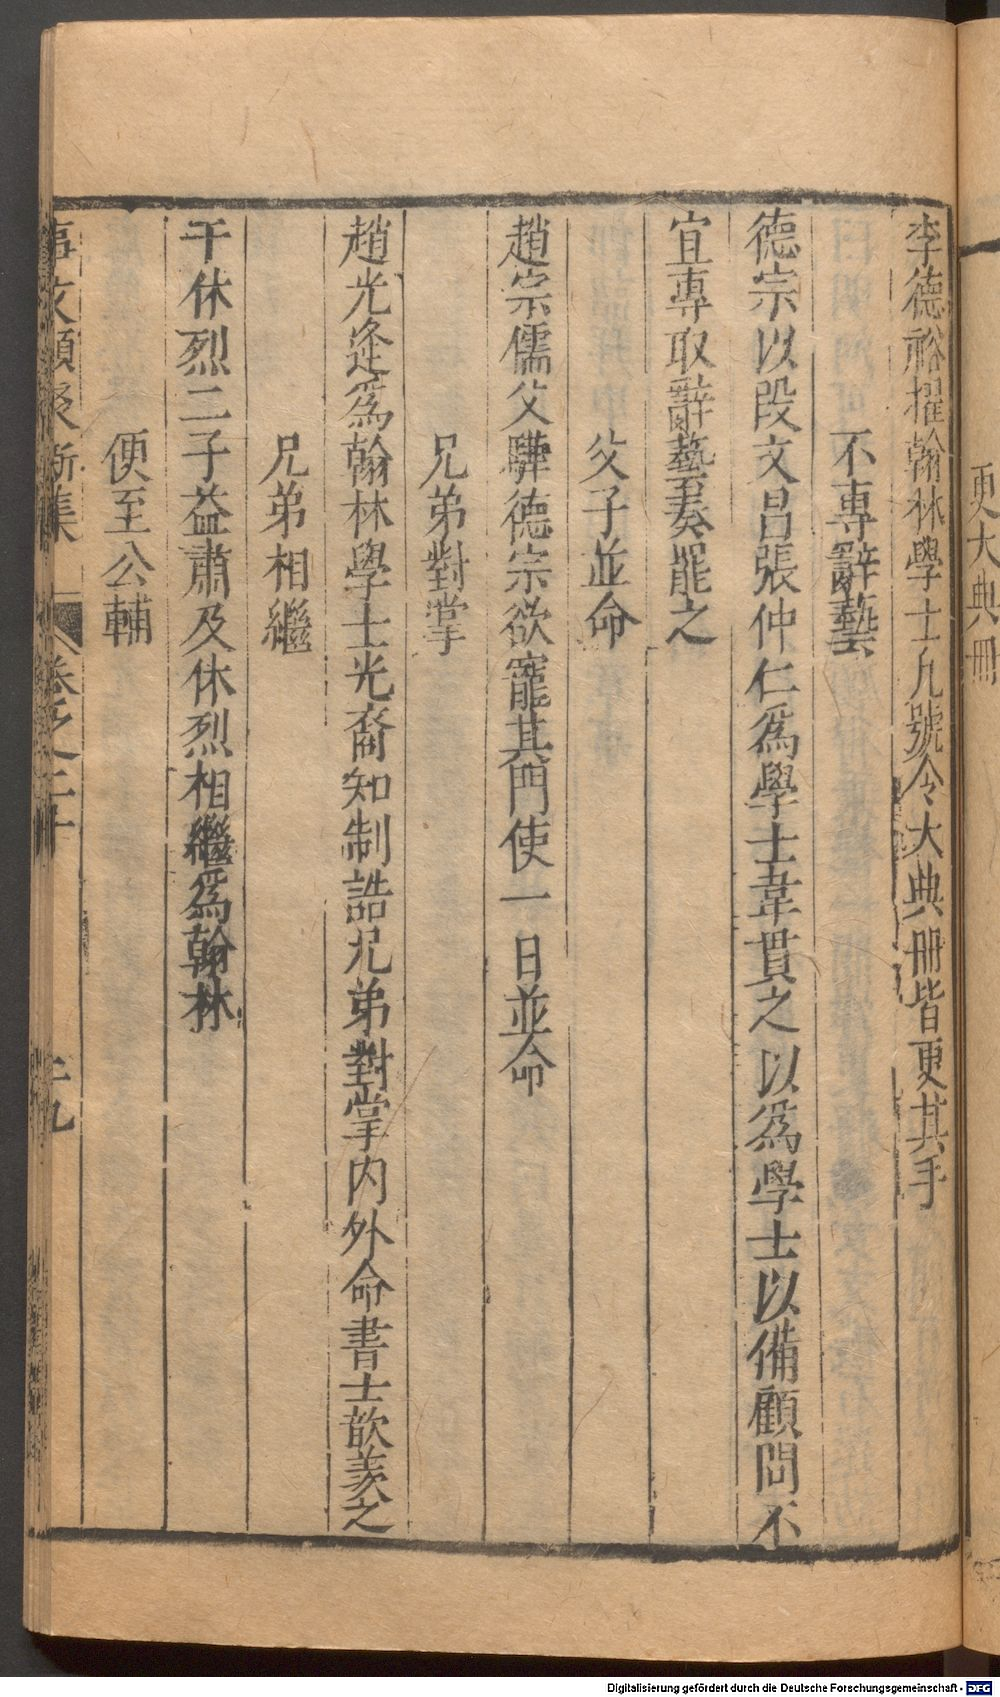 更大典冊
李德裕擢翰林學士凡號令大典冊皆更其手
不專辭藝
德宗以段文昌張仲仁爲學士韋貫之以爲學士以備顧問不
宜專取辭藝奏罷之
父子並命
趙宗儒父驊德宗欲寵其門使一日並命
兄弟對掌
趙光逄爲翰林學士光裔知制誥兄弟對掌內外命書士歆羨之
兄弟相繼
于休烈二子益肅及休烈相繼爲翰林
便至公輔
事文類聚新集 卷之二十 十九
Digitalisierung gefördert durch die Deutsche Forschungsgemeinschaft - DFG